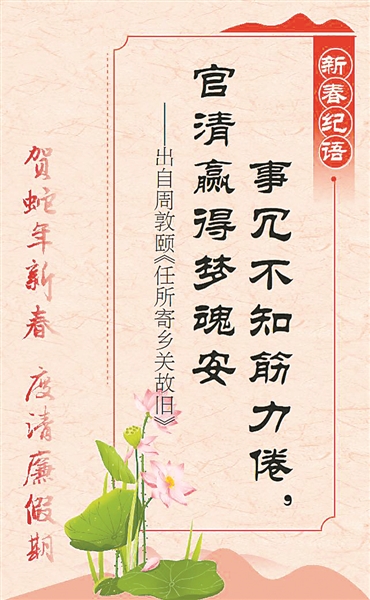 新春纪语
事冗不知筋力倦，
官清赢得梦魂安
——出自周敦颐《任所寄乡关故旧》
贺蛇年新春 度清廉假期